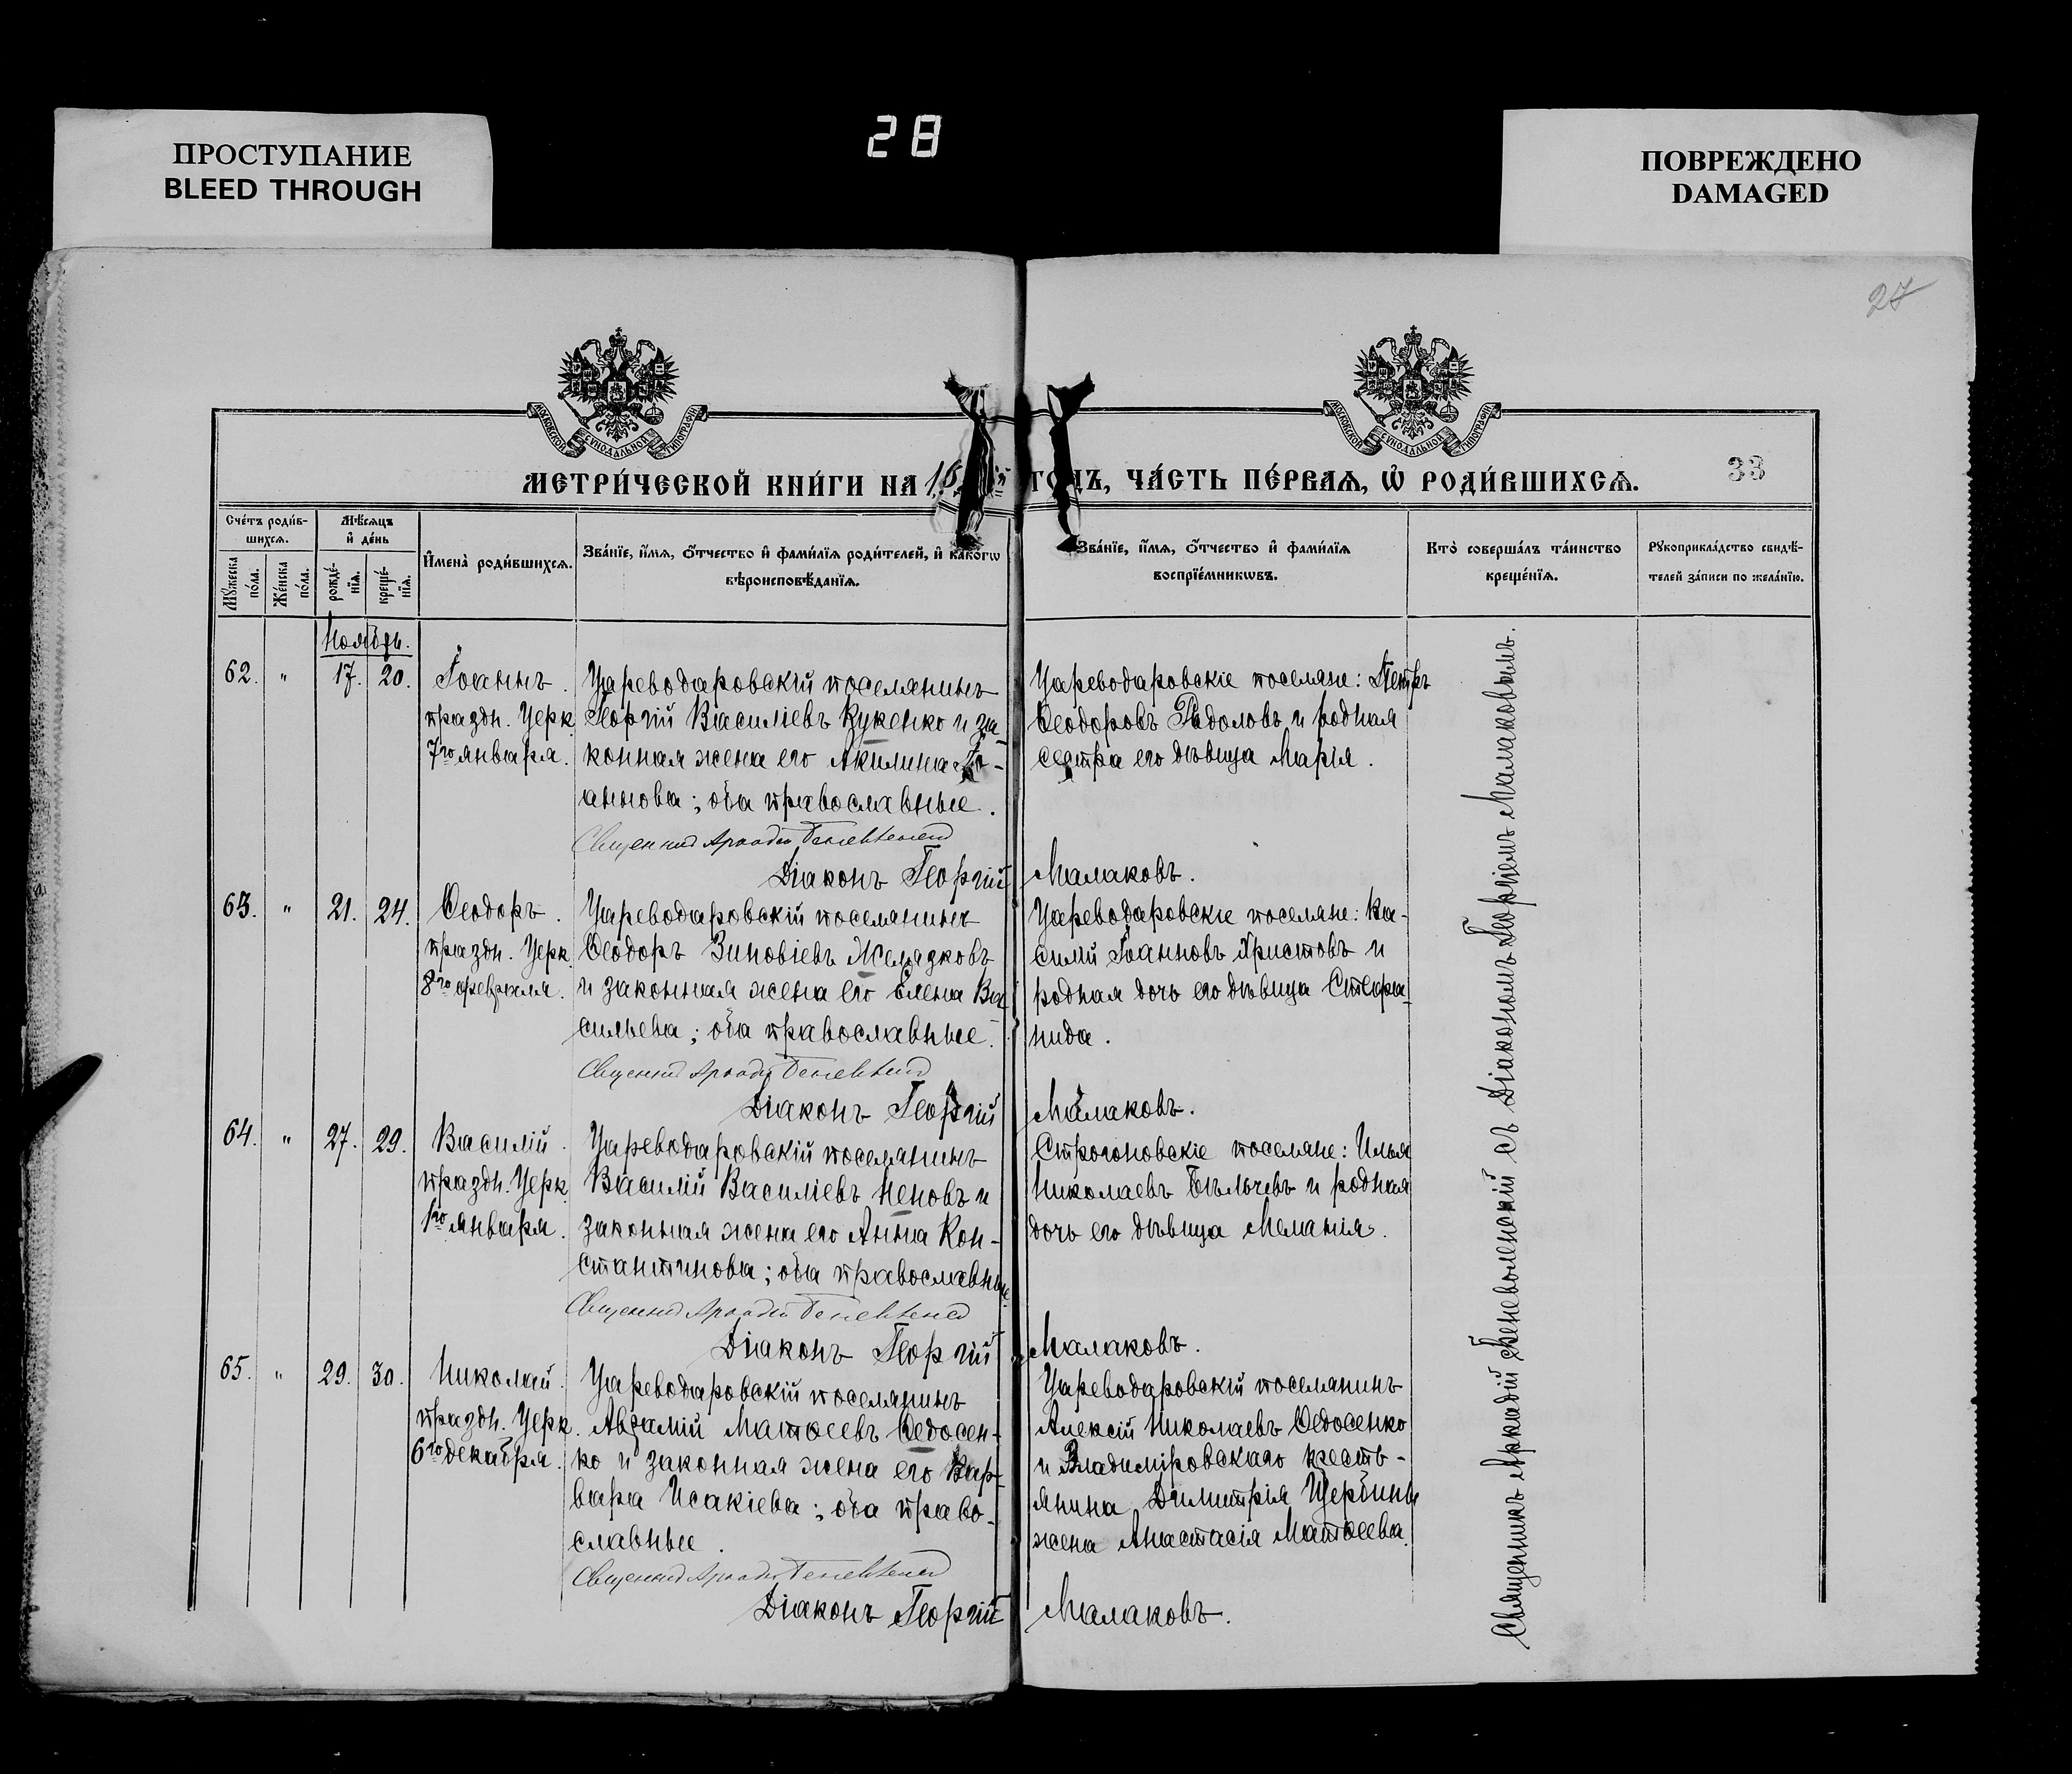 ПРОСТУПАНИЕ
BLEED THROUGH
28
ПОВРЕЖДЕНО
DAMAGED
27
МОСКОВСКОЙ СѴНОДАЛЬНОЙ ТИПОГРАФІИ
МОСКОВСКОЙ СѴНОДАЛЬНОЙ ТИПОГРАФІИ
МЕТРИ́ЧЕСКОЙ КНИ́ГИ НА 18 ГОДЪ, ЧА́СТЬ ПЕ́РВАѦ, Ѿ РОДИ́ВШИХСѦ.
33
Сче́тъ роди́в-
шихсѧ.
Мꙋ́жеска по́ла.
Же́нска по́ла.
Мѣ́сѧцъ
и҆ де́нь
рожде́-
нїѧ.
креще́-
нїѧ.
И҆мена̀ роди́вшихсѧ.
Зва́нїе, и҆́мѧ, ѻ҆́тчество и҆ фами́лїѧ роди́телей, и҆ како́гѡ
вѣроисповѣ́данїѧ.
Зва́нїе, и҆́мѧ, ѻ҆́тчество и҆ фами́лїѧ
воспрїе́мникѡвъ.
Кто̀ соверша́лъ та́инство
креще́нїѧ.
Рꙋкоприкла́дство свидѣ́-
телей за́писи по жела́нїю.
Ноябрь.
62. " 17. 20.
Іоаннъ.
праздн. Церк.
7го января.
Цареводаровскій поселянинъ
Георгій Василіевъ Кукенко и за-
конная жена его Акилина Іо-
аннова; оба православные.
Священник Аркадій Беневоленский
Діаконъ Георгій Малаковъ.
Цареводаровскіе поселяне: Петръ
Ѳеодоровъ Радоловъ и родная
сестра его дѣвица Марія.
63. " 21. 24.
Ѳеодоръ.
праздн. Церк.
8го февраля.
Цареводаровскій поселянинъ
Ѳеодоръ Зиновіевъ Желядковъ
и законная жена его Елена Ва-
сильева; оба православные.
Священник Аркадій Беневоленский
Діаконъ Георгій Малаковъ.
Цареводаровскіе поселяне: Ва-
силій Іоанновъ Христовъ и
родная дочь его дѣвица Стефа-
нида.
64. " 27. 29.
Василій.
праздн. Церк.
1го января.
Цареводаровскій поселянинъ
Василій Василіевъ Неновъ и
законная жена его Анна Кон-
стантинова; оба православные.
Священник Аркадій Беневоленский
Діаконъ Георгій Малаковъ.
Строгоновскіе поселяне: Илья
Николаевъ Бѣльчевъ и родная
дочь его дѣвица Меланія.
65. " 29. 30.
Николай.
праздн. Церк.
6го декабря.
Цареводаровскій поселянинъ
Авраамій Матѳеевъ Ѳедосен-
ко и законная жена его Вар-
вара Исакіева; оба право-
славные.
Священник Аркадій Беневоленский
Діаконъ Георгій Малаковъ.
Цареводаровскій поселянинъ
Алексій Николаевъ Ѳедосенко
и Владиміровскаго кресть-
янина Димитрія Щербины
жена Анастасія Матѳеева.
Священникъ Аркадій Беневоленскій съ Діакономъ Георгіемъ Малаковымъ.